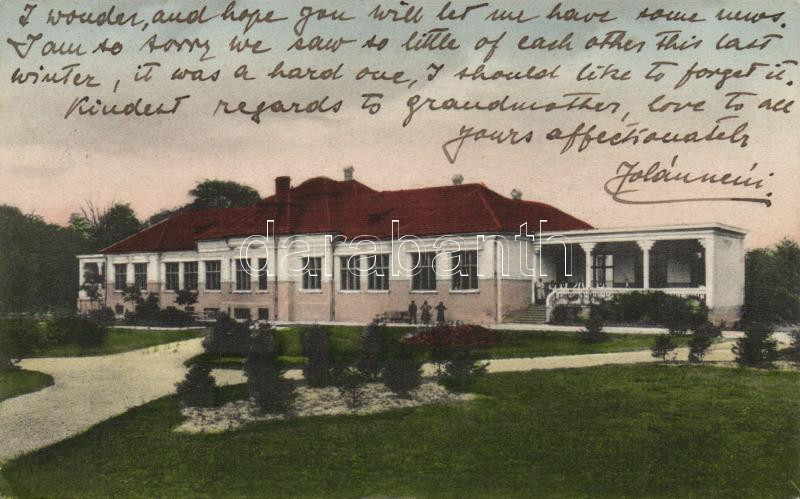 I wonder, and hope you will let me have some news.
I am so sorry we saw so little of each other this last
winter, it was a hard one, I should like to forget it.
Kindest regards to grandmother, love to all
yours affectionately
Jolánnéni.
darabanth